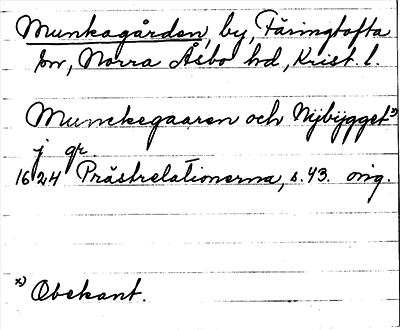 Munkagården, by, Färingtofta
sn, Norra Åsbo hd, Krist. l.
Munckegaaren och Nÿbÿgget x)
j gr
1624 Prästrelationerna, s. 43. orig.
x) Obekant.